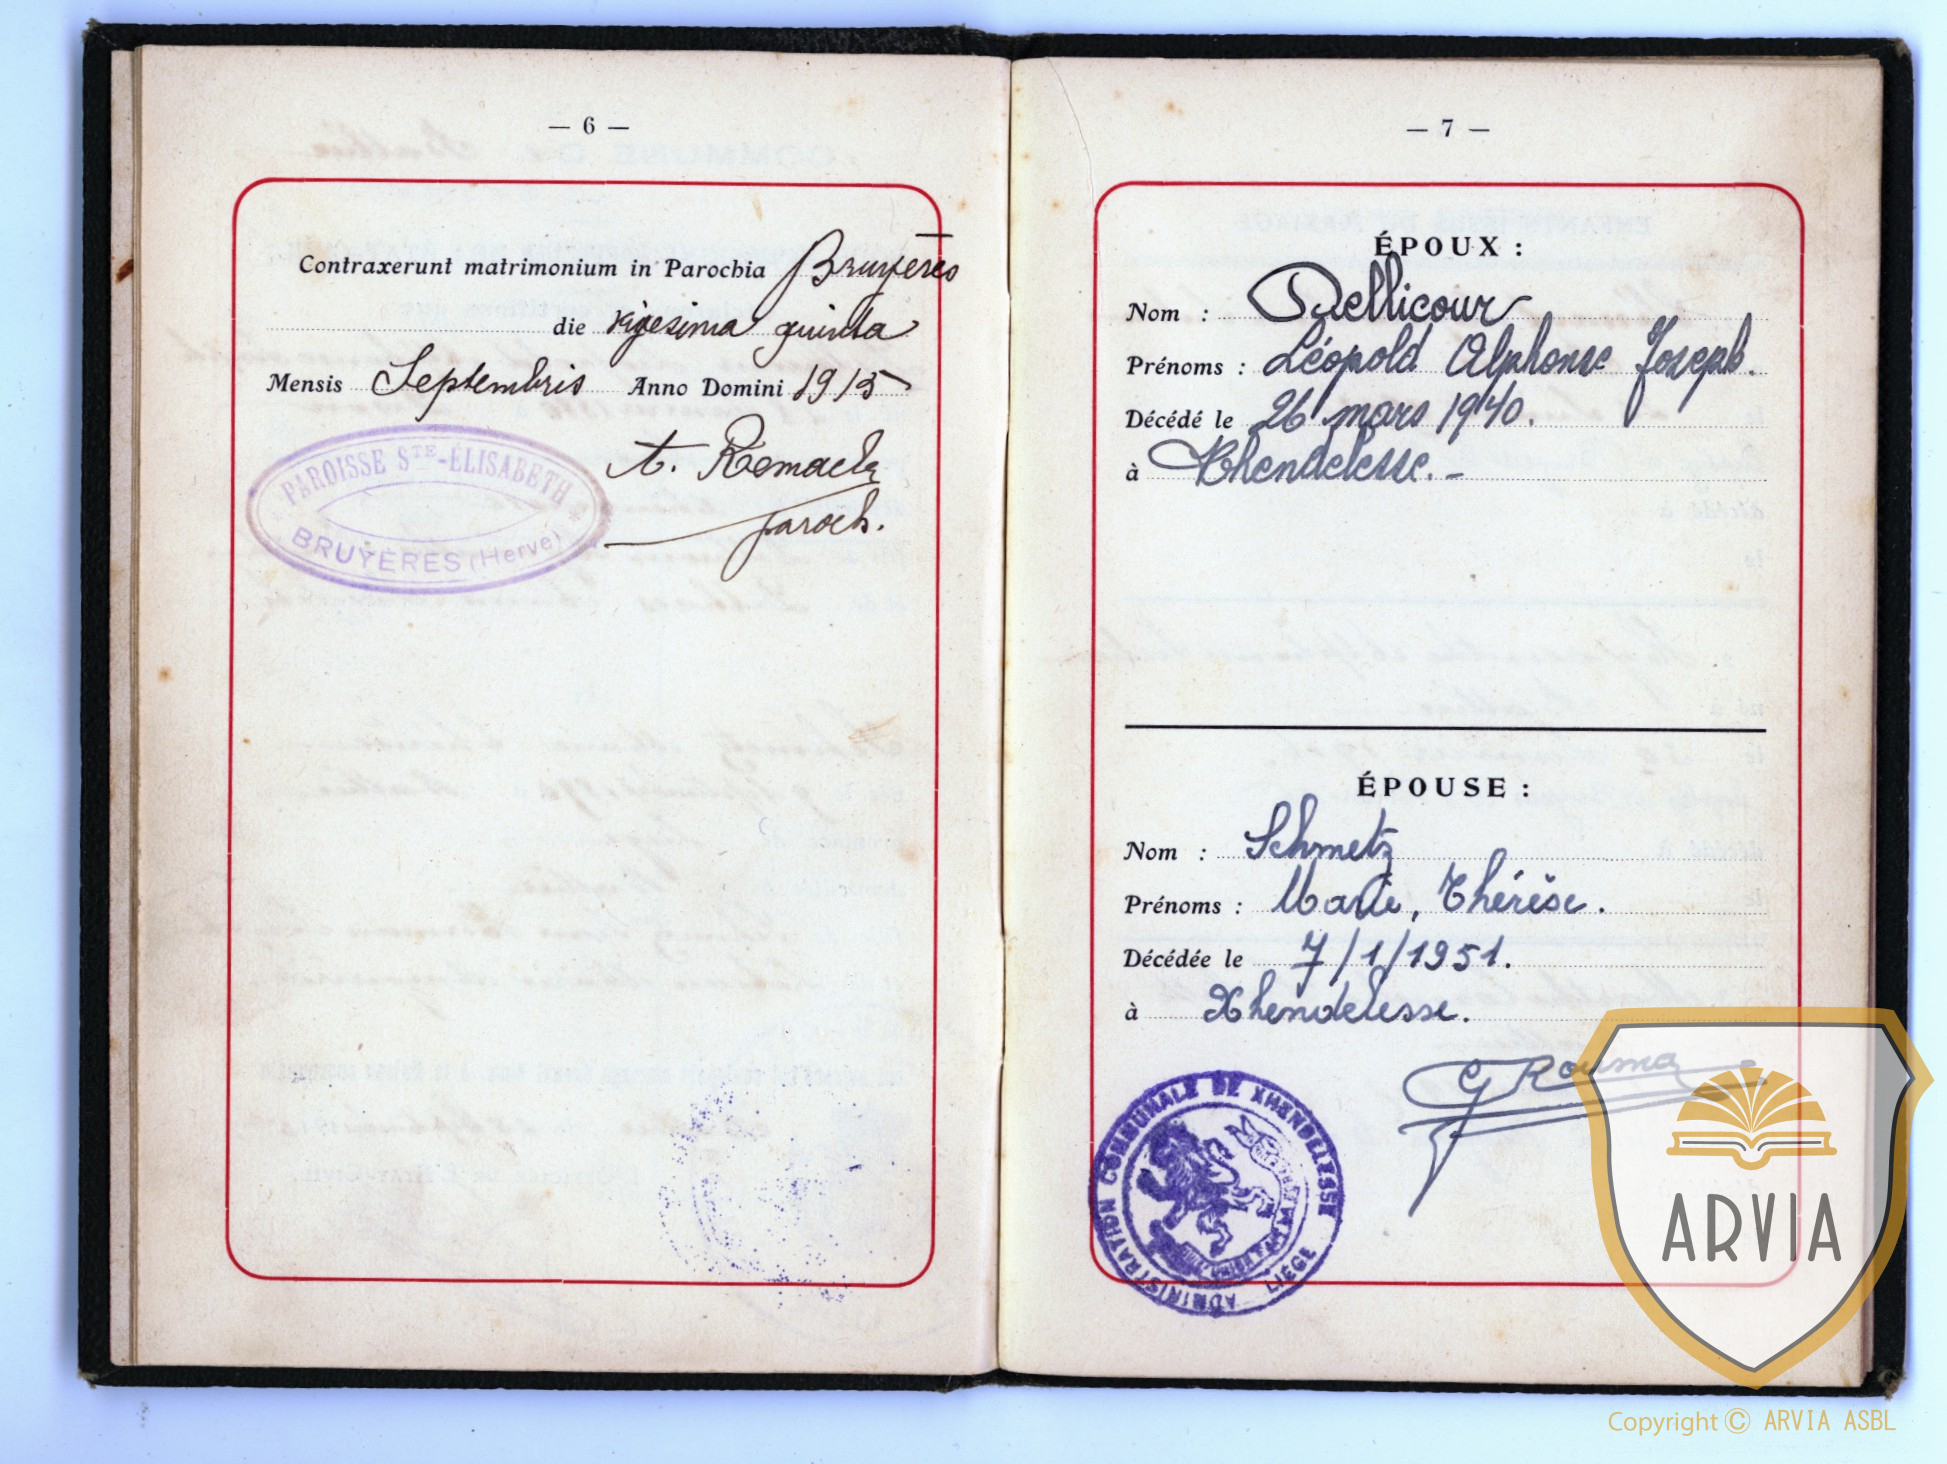 — 6 —
Contraxerunt matrimonium in Parochia Bruyères
die vigesima quinta
Mensis Septembris Anno Domini 1915
A. Remacle
paroch.
PAROISSE STE-ÉLISABETH
BRUYÈRES (Herve)
— 7 —
ÉPOUX :
Nom : Dellicour
Prénoms : Léopold Alphonse Joseph.
Décédé le 26 mars 1940.
à Xhendelesse. -
ÉPOUSE :
Nom : Schmetz
Prénoms : Marie, Thérèse.
Décédée le 7/1/1951.
à Xhendelesse.
G Rouma
ADMINISTRATION COMMUNALE DE XHENDELESSE
LIÈGE
ARVIA
Copyright © ARVIA ASBL